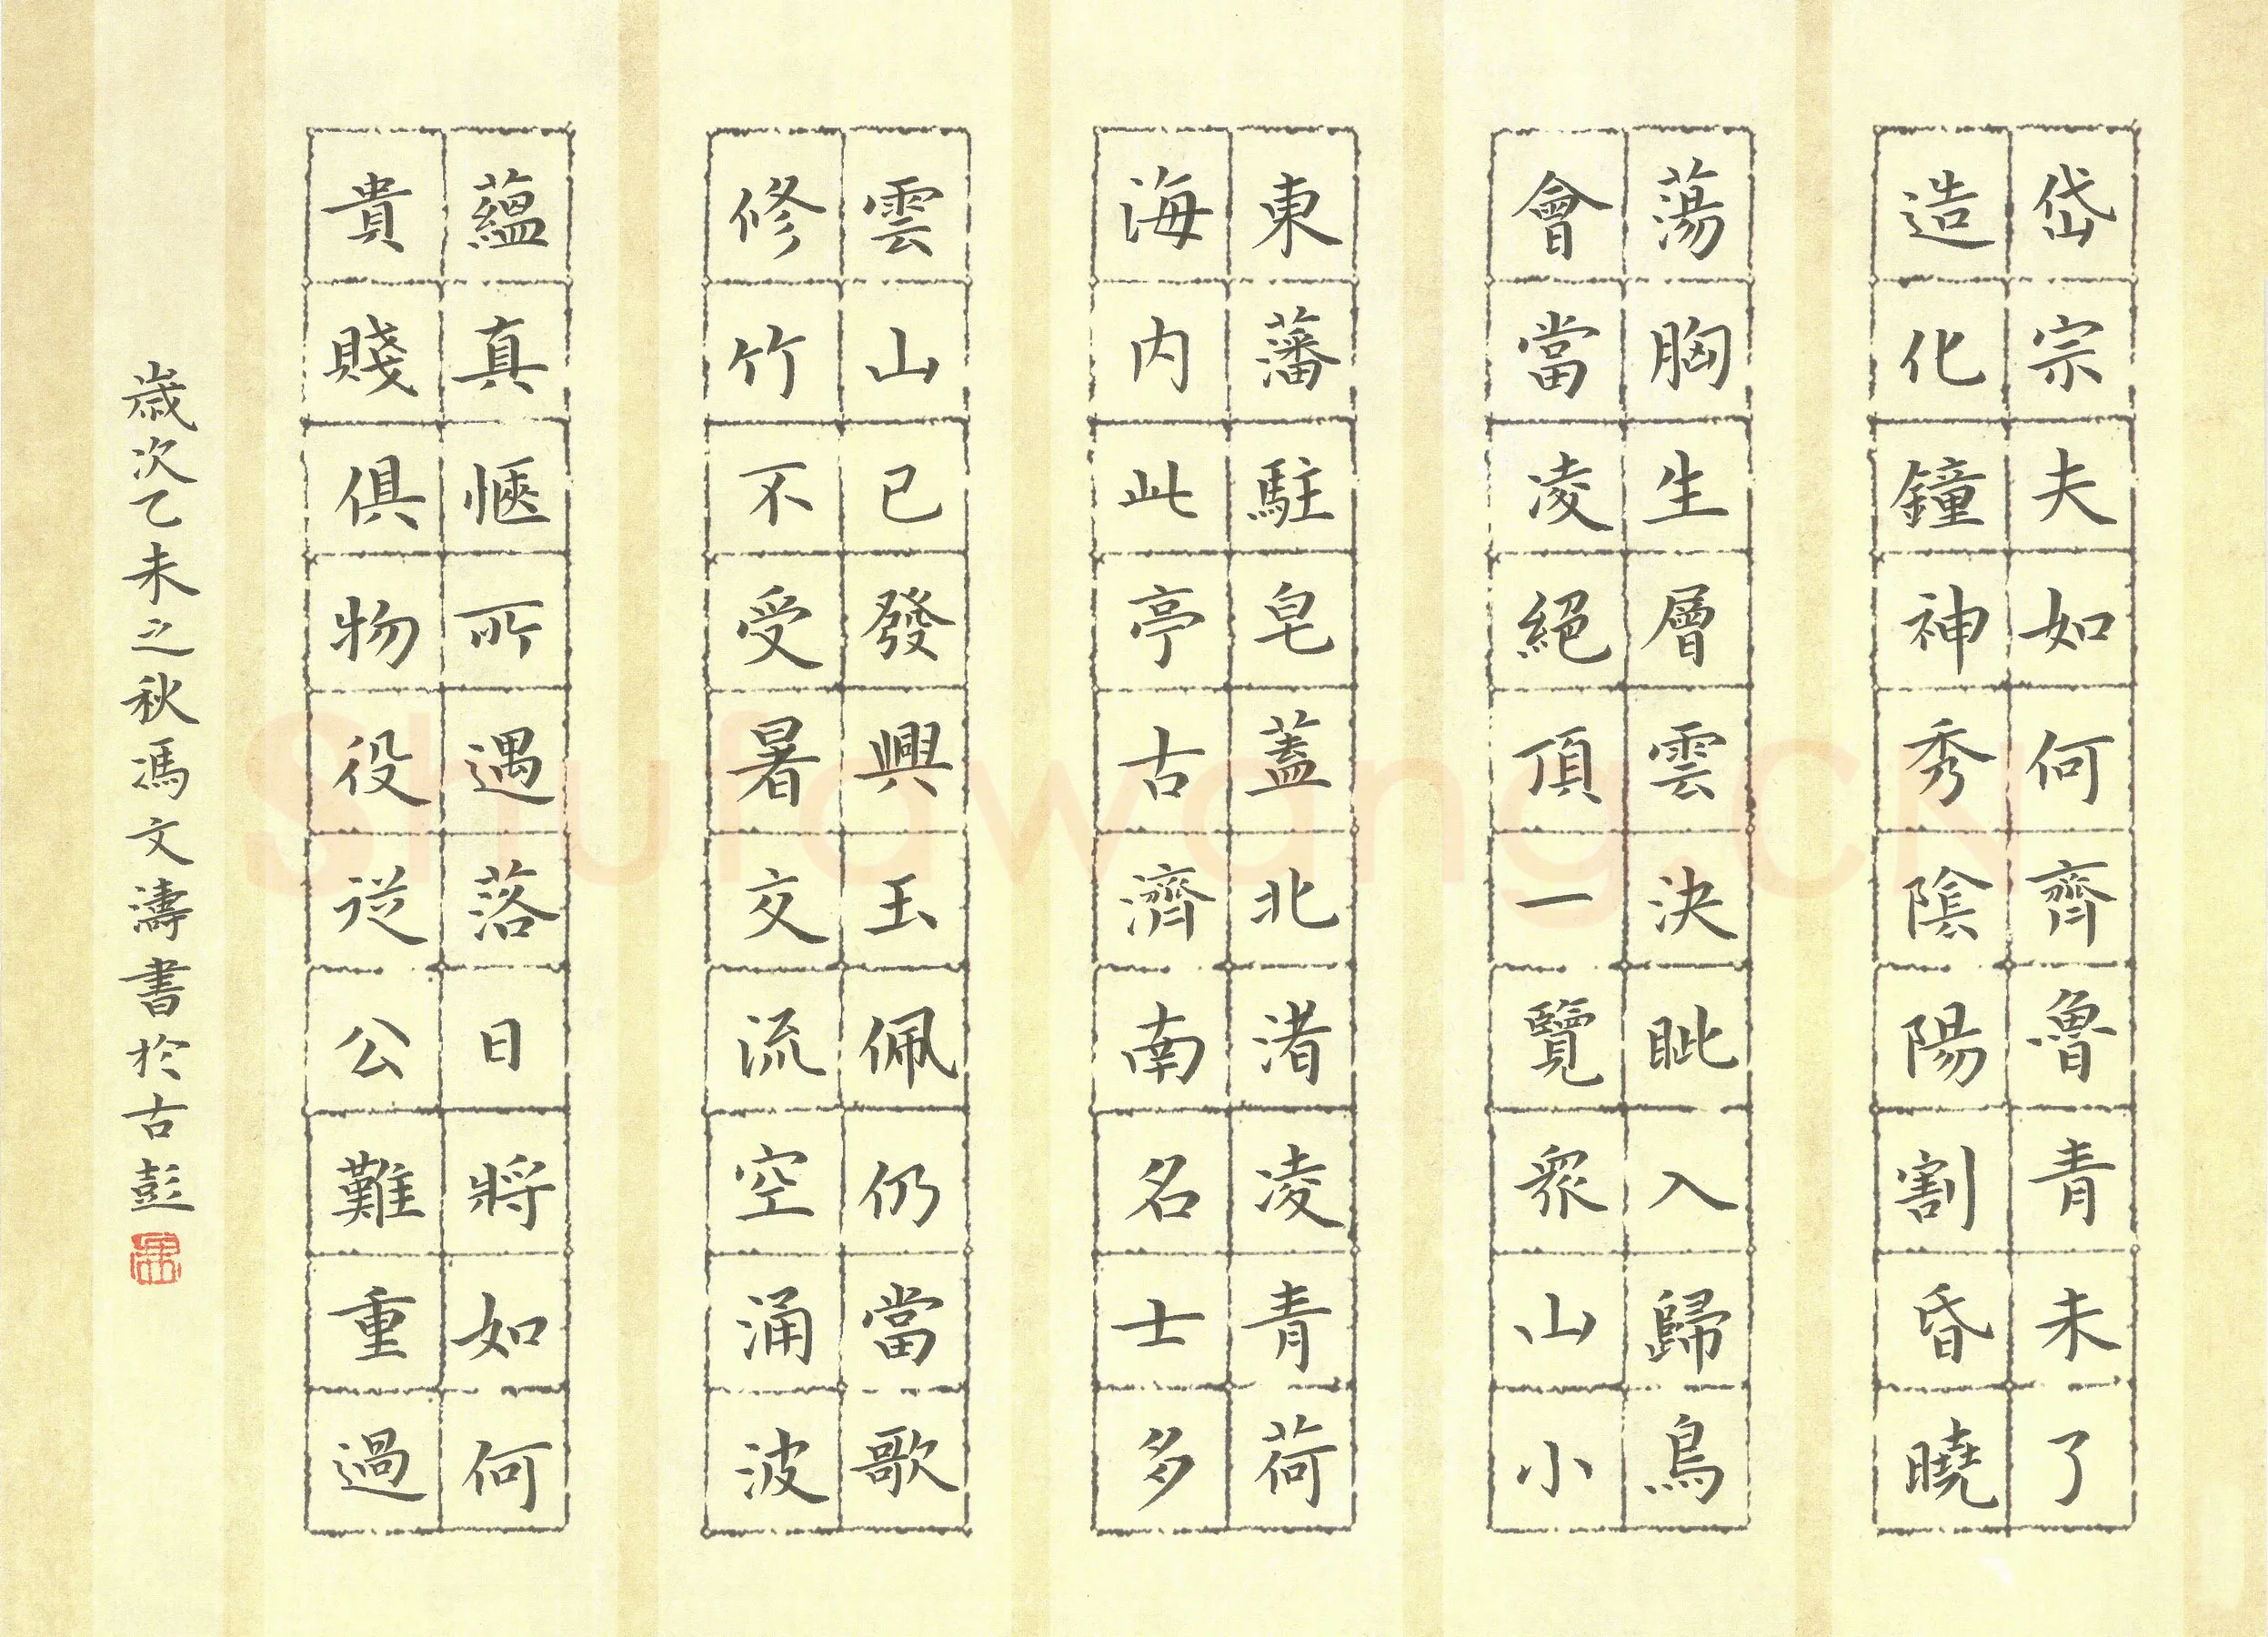 岱宗夫如何齊魯青未了
造化鐘神秀陰陽割昏曉
蕩胸生層雲決眥入歸鳥
會當凌絕頂一覽眾山小
東藩駐皂蓋北渚凌青荷
海内此亭古濟南名士多
雲山已發興玉佩仍當歌
修竹不受暑交流空涌波
蘊真愜所遇落日將如何
貴賤俱物役従公難重過
歲次乙未之秋馮文濤書於古彭
Shufawang.CN